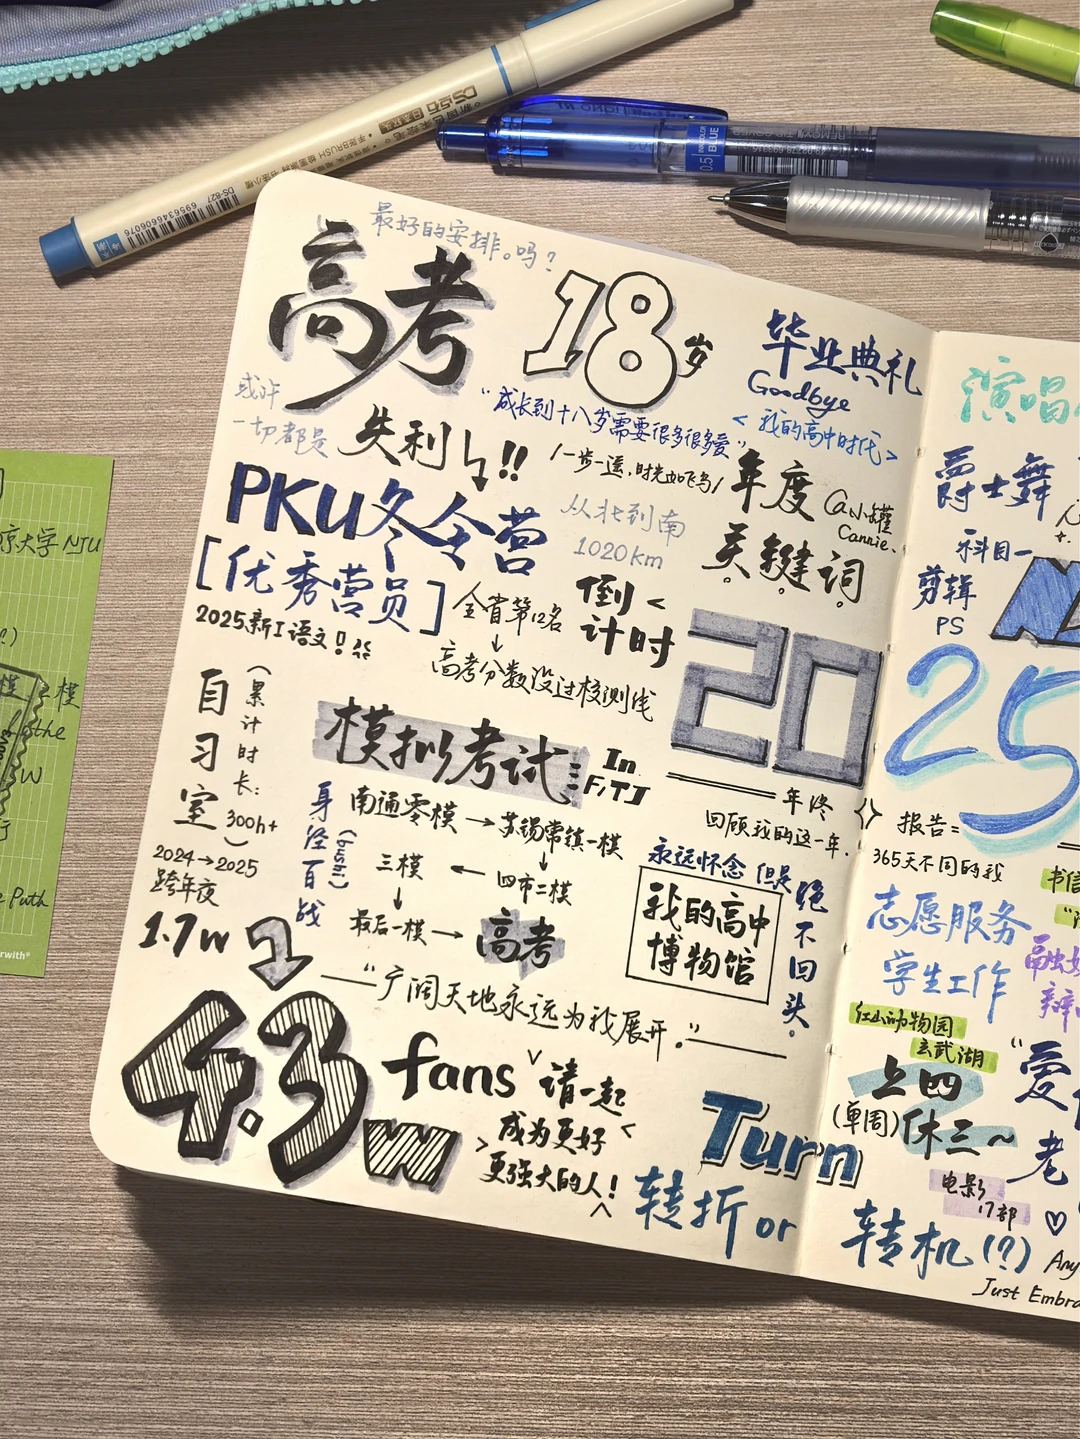 最好的安排。吗？
高考
18岁
毕业典礼
Goodbye
<我的高中时代>
或许
一切都是
失利!!
"成长到十八岁需要很多很多爱"
/一步一遥,时光如飞鸟/
PKU冬令营
[优秀营员]
从北到南
1020km
年度
关键词
@小罐
Cannie.
2025新I语文!
全省第12名
↓
高考分数没过校测线
倒
计时
20
25
自习室
(累计时长:300h+)
2024→2025
跨年夜
模拟考试
In
F,TJ
身经百战
(bushi)
南通零模→苏锡常镇一模
↓
三模←四市二模
↓
最后一模→高考
年终
回顾我的这一年.
永远怀念 但是
绝不回头。
我的高中
博物馆
1.7w
——"广阔天地永远为我展开."——
4.3w
fans
请一起
成为更好
更强大的人!
Turn
转折 or
转机(?)
爵士舞
科目一
剪辑
PS
报告=
365天不同的我
志愿服务
学生工作
红山动物园
玄武湖
上四
(单周)休三~
电影
17部
Just Embra
DS-827
6956346606076
0.5
BLUE